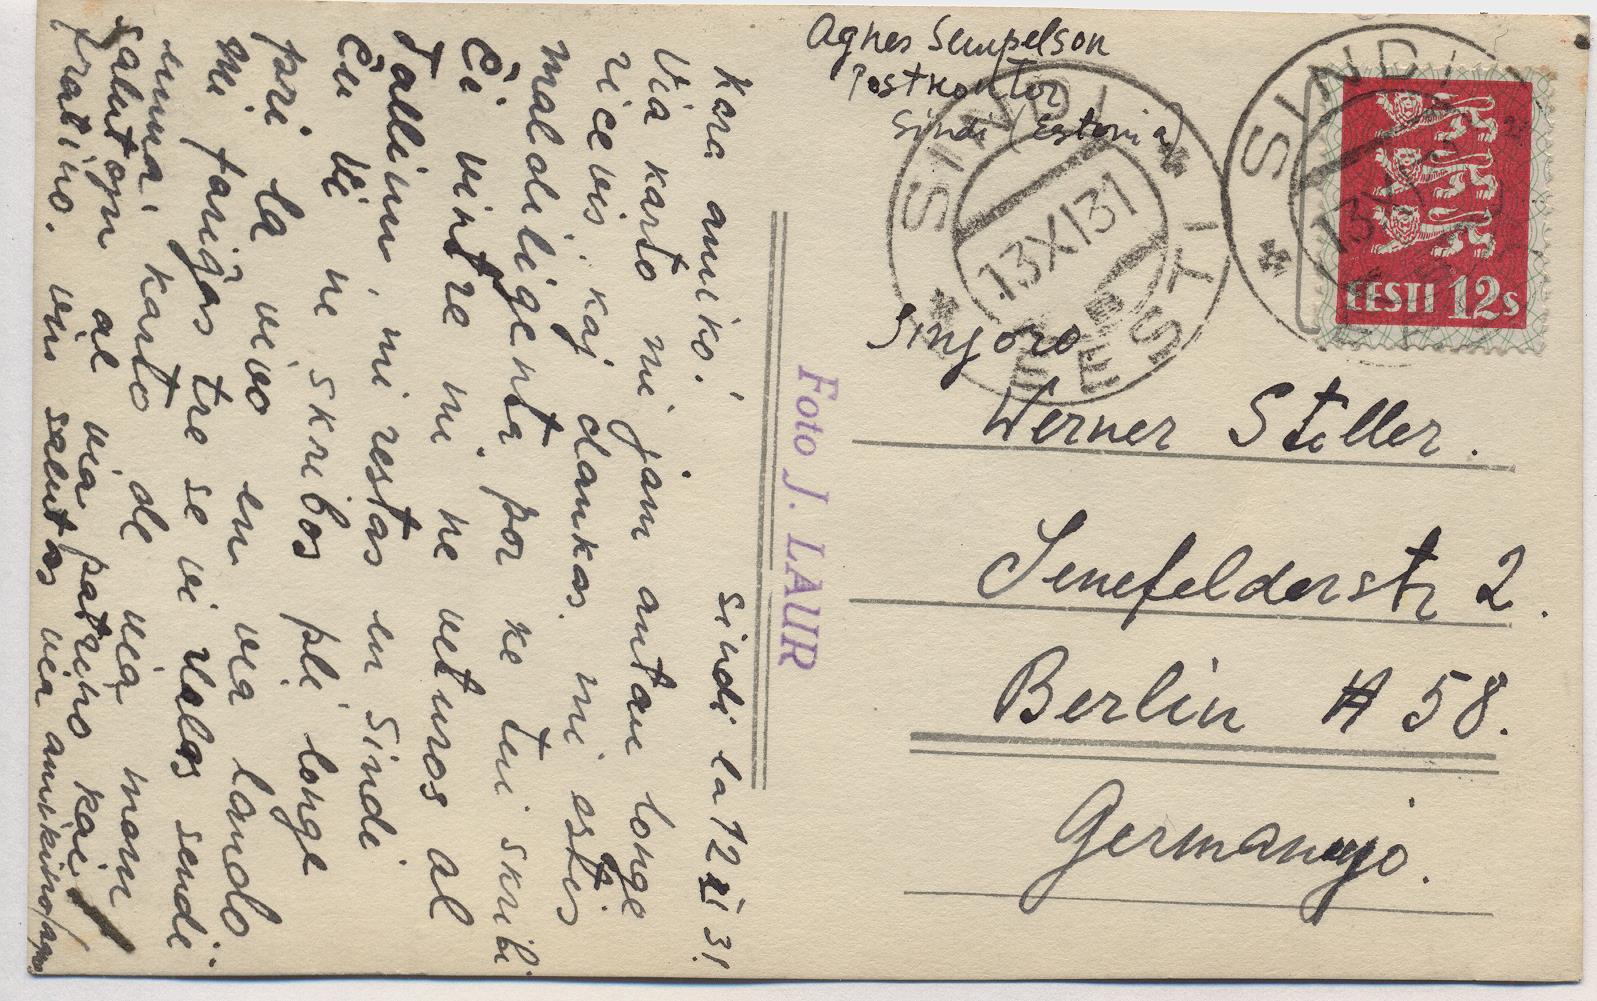 Agnes Sempelson
Postkontor
Sindi (Estonia)
SINDI
13 XI 31
EESTI
SINDI
13 XI
EESTI
EESTI 12s
Sinjoro
Werner Stiller.
Senefelderstr 2.
Berlin N 58.
Germanujo.
Foto J. LAUR
Sindi la 12 XI 31
Kara amiko!
Via karto mi jam antau longe
ricevis, kaj dankas. mi estis
maldiligenta por ke tui skribi.
Ĉi vintre mi ne veturos al
Tallinn, mi restas en Sindi
Ĉu vi ne skribos pli longe
pri la vivo en via lando.
Mi farigas tre se vi volos sendi
unu karto de via man
salutojn al via patrino kaj
fratino. vin salutas via amikino